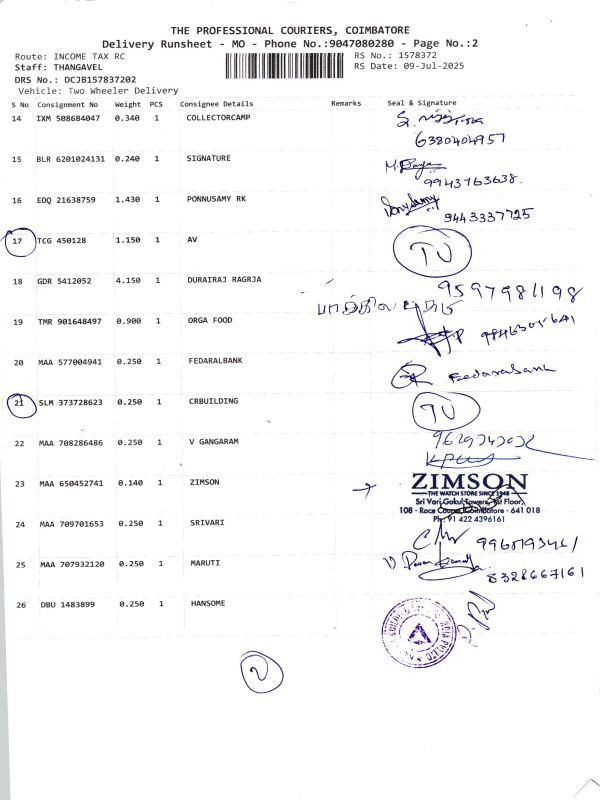 THE PROFESSIONAL COURIERS, COIMBATORE
Delivery Runsheet - MO - Phone No.:9047080280 - Page No.:2
Route: INCOME TAX RC
RS No.: 1578372
Staff: THANGAVEL
RS Date: 09-Jul-2025
DRS No.: DCJB157837202
Vehicle: Two Wheeler Delivery
S No Consignment No Weight PCS Consignee Details Remarks Seal & Signature
14 IXM 508684047 0.340 1 COLLECTORCAMP
6380404957
15 BLR 6201024131 0.240 1 SIGNATURE
9943763638.
16 EDQ 21638759 1.430 1 PONNUSAMY RK
9443337725
17 TCG 450128 1.150 1 AV
18 GDR 5412052 4.150 1 DURAIRAJ RAGRJA
9597981198
19 TMR 901648497 0.900 1 ORGA FOOD
20 MAA 577004941 0.250 1 FEDARALBANK
21 SLM 373728623 0.250 1 CRBUILDING
22 MAA 708286486 0.250 1 V GANGARAM
23 MAA 650452741 0.140 1 ZIMSON
ZIMSON
THE WATCH STORE SINCE 1948
Sri Vari Gokul Towers, 1st Floor,
108 - Race Course, Coimbatore - 641 018
Ph: 91 422 4396161
24 MAA 709701653 0.250 1 SRIVARI
25 MAA 707932120 0.250 1 MARUTI
8328667161
26 DBU 1483899 0.250 1 HANSOME
2